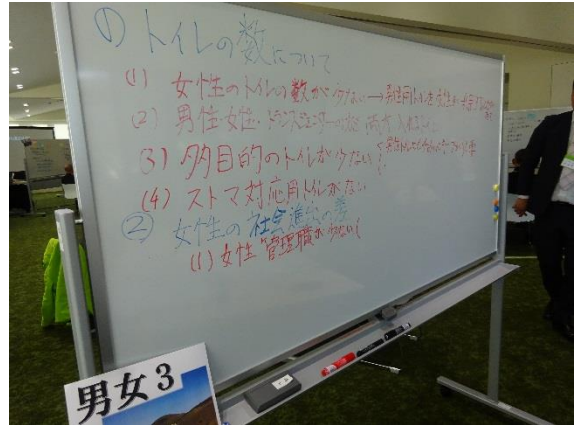 ① トイレの数について
(1) 女性のトイレの数が少ない→男性用トイレを女性が
(2) 男性・女性・トランスジェンダー
(3) 多目的のトイレが少ない!
(4) ストマ対応用トイレがない
② 女性の社会進出の差
(1) 女性管理職が少ない!
男女3